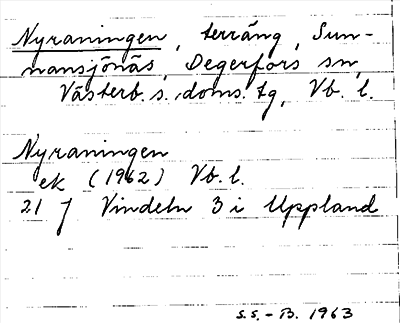 Nyraningen, terräng, Sun-
nansjönäs, Degerfors sn,
Västerb. s. doms. tg, Vb. l.
Nyraningen
ek (1962) Vb. l.
21 J Vindeln 3 i Uppland
S.S.-B. 1963